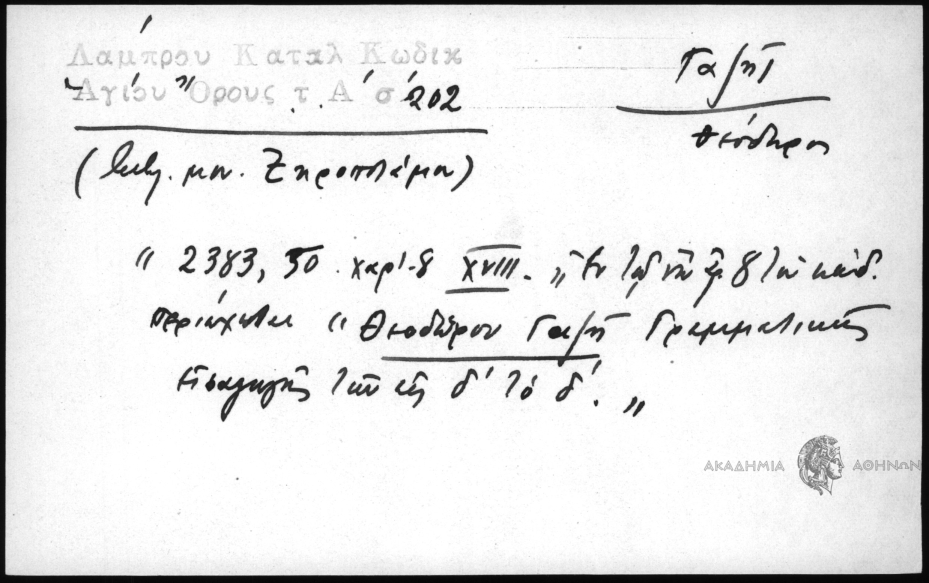 Λάμπρου Καταλ Κωδικ
Ἁγίου Ὄρους τ Α΄ σ. 202
Γαζῆς
Θεόδωρος
(     . μον. Ξηροποτάμου)
" 2383, 50. χαρτ. 8 XVIII. "
περιέχεται " Θεοδώρου Γαζῆ Γραμματικῆς
εἰσαγωγῆς τῶν εἰς δ΄ τὸ δ΄. "
ΑΚΑΔΗΜΙΑ ΑΘΗΝΩΝ